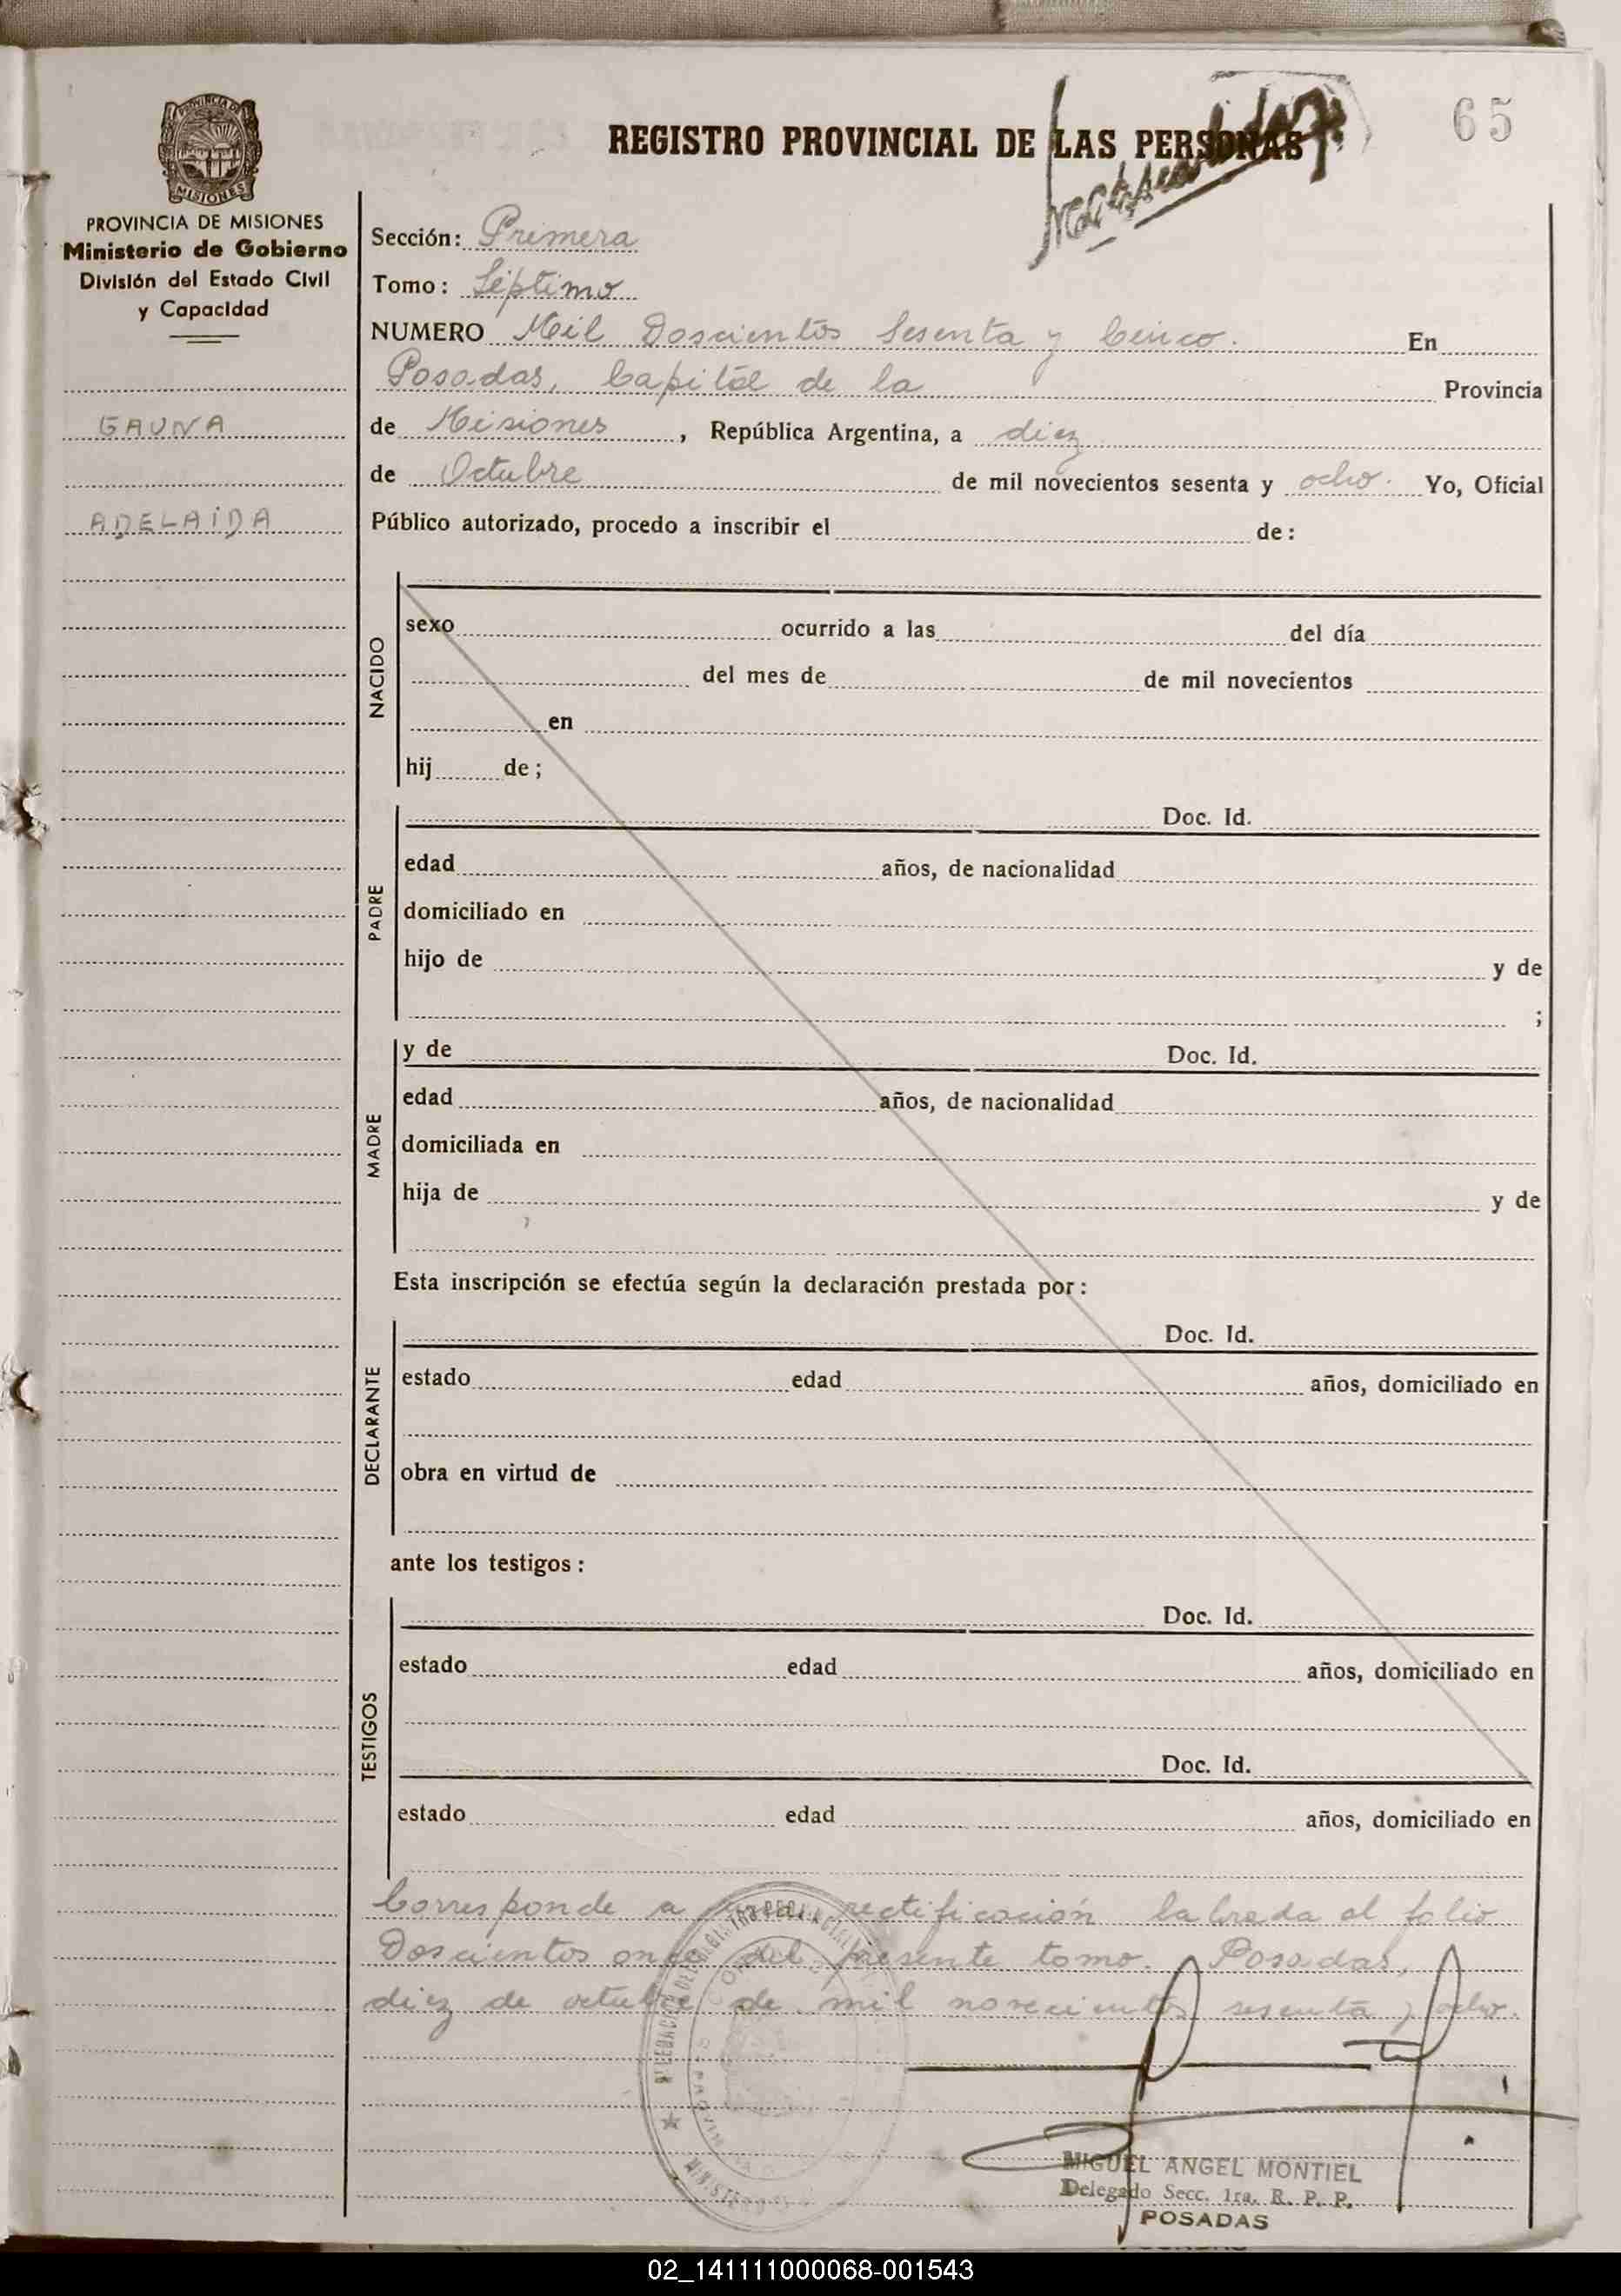 65
REGISTRO PROVINCIAL DE LAS PERSONAS
PROVINCIA DE MISIONES
Ministerio de Gobierno
División del Estado Civil
y Capacidad
GAUNA
ADELAIDA
Sección: Primera
Tomo: Séptimo
NUMERO Mil Doscientos Sesenta y Cinco. En
Posadas, Capital de la Provincia
de Misiones, República Argentina, a diez
de Octubre de mil novecientos sesenta y ocho. Yo, Oficial
Público autorizado, procedo a inscribir el de:
NACIDO
sexo ocurrido a las del día
del mes de de mil novecientos
en
hij de;
PADRE
Doc. Id.
edad años, de nacionalidad
domiciliado en
hijo de y de
;
MADRE
y de Doc. Id.
edad años, de nacionalidad
domiciliada en
hija de y de
Esta inscripción se efectúa según la declaración prestada por:
DECLARANTE
Doc. Id.
estado edad años, domiciliado en
obra en virtud de
ante los testigos:
TESTIGOS
Doc. Id.
estado edad años, domiciliado en
Doc. Id.
estado edad años, domiciliado en
Corresponde a rectificación labrada al folio
Doscientos once del presente tomo. Posadas,
diez de octubre de mil novecientos sesenta y ocho.
MIGUEL ANGEL MONTIEL
Delegado Secc. 1ra. R. P. P.
POSADAS
02_141111000068-001543